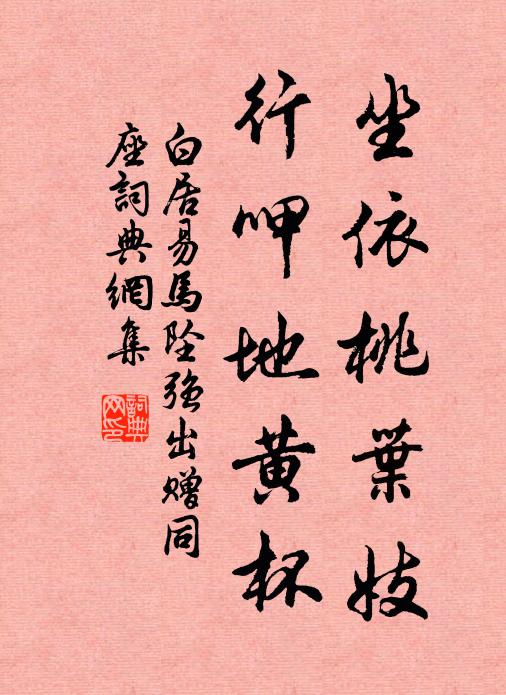 坐依桃葉妓
行呷地黄杯
白居易馬墜強出贈同
座詞典網集
詞典网印